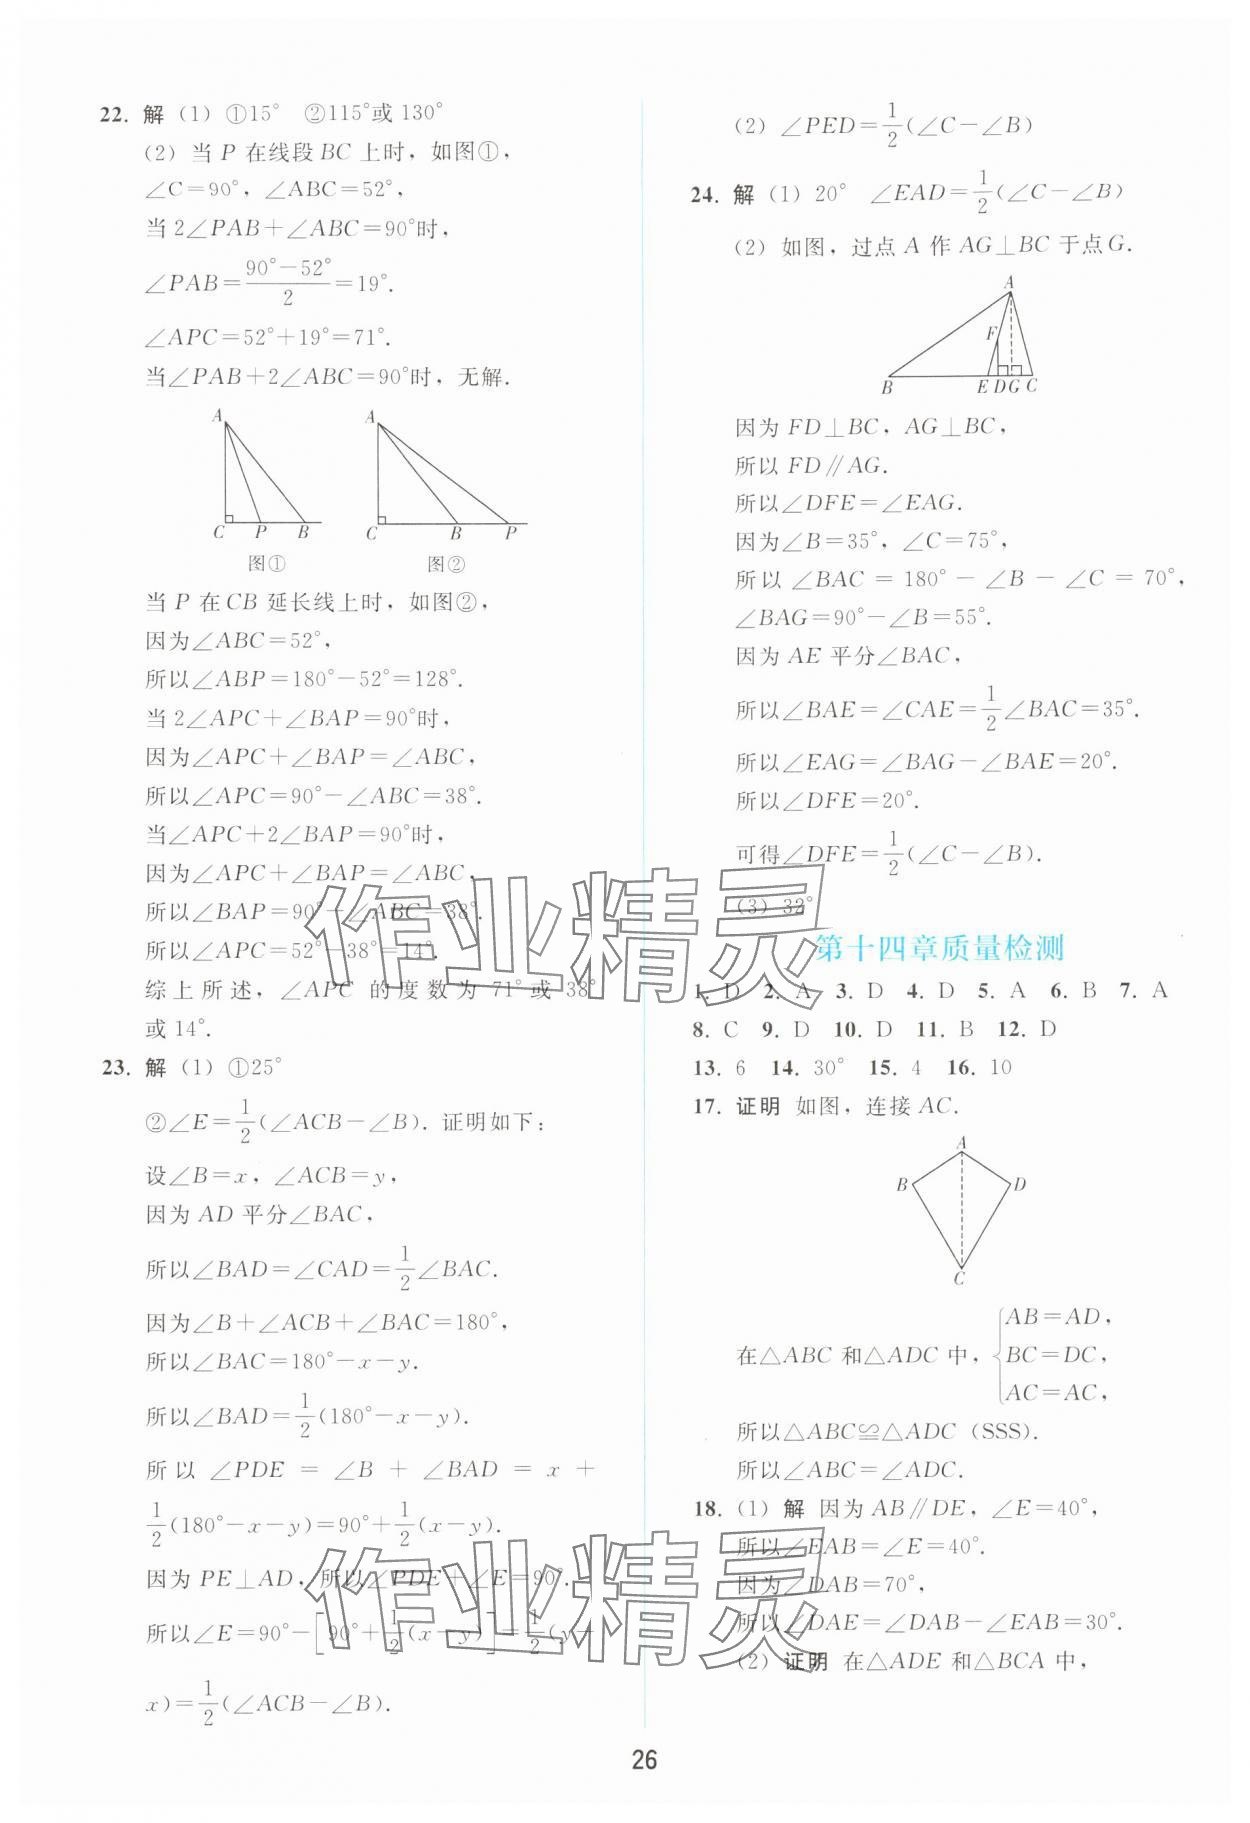 22. 解 (1) ①15° ②115°或 130°
(2) 当 P 在线段 BC 上时，如图①，
∠C=90°，∠ABC=52°，
当 2∠PAB+∠ABC=90°时，
∠PAB=\frac{90°-52°}{2}=19°.
∠APC=52°+19°=71°.
当∠PAB+2∠ABC=90°时，无解.
A
C P B
图①
A
C B P
图②
当 P 在 CB 延长线上时，如图②，
因为∠ABC=52°，
所以∠ABP=180°-52°=128°.
当 2∠APC+∠BAP=90°时，
因为∠APC+∠BAP=∠ABC，
所以∠APC=90°-∠ABC=38°.
当∠APC+2∠BAP=90°时，
因为∠APC+∠BAP=∠ABC，
所以∠BAP=90°-∠ABC=38°.
所以∠APC=52°-38°=14°.
综上所述，∠APC 的度数为 71°或 38°
或 14°.
23. 解 (1) ①25°
②∠E=\frac{1}{2}(∠ACB-∠B). 证明如下：
设∠B=x，∠ACB=y，
因为 AD 平分∠BAC，
所以∠BAD=∠CAD=\frac{1}{2}∠BAC.
因为∠B+∠ACB+∠BAC=180°，
所以∠BAC=180°-x-y.
所以∠BAD=\frac{1}{2}(180°-x-y).
所以 ∠PDE = ∠B + ∠BAD = x +
\frac{1}{2}(180°-x-y)=90°+\frac{1}{2}(x-y).
因为 PE⊥AD，所以∠PDE+∠E=90°.
所以∠E=90°-[90°+\frac{1}{2}(x-y)]=\frac{1}{2}(y-
x)=\frac{1}{2}(∠ACB-∠B).
(2) ∠PED=\frac{1}{2}(∠C-∠B)
24. 解 (1) 20° ∠EAD=\frac{1}{2}(∠C-∠B)
(2) 如图，过点 A 作 AG⊥BC 于点 G.
A
F
B E D G C
因为 FD⊥BC，AG⊥BC，
所以 FD∥AG.
所以∠DFE=∠EAG.
因为∠B=35°，∠C=75°，
所以 ∠BAC = 180° - ∠B - ∠C = 70°，
∠BAG=90°-∠B=55°.
因为 AE 平分∠BAC，
所以∠BAE=∠CAE=\frac{1}{2}∠BAC=35°.
所以∠EAG=∠BAG-∠BAE=20°.
所以∠DFE=20°.
可得∠DFE=\frac{1}{2}(∠C-∠B).
(3) 32°
第十四章质量检测
1. D 2. A 3. D 4. D 5. A 6. B 7. A
8. C 9. D 10. D 11. B 12. D
13. 6 14. 30° 15. 4 16. 10
17. 证明 如图，连接 AC.
A
B D
C
在△ABC 和△ADC 中，{AB=AD，
BC=DC，
AC=AC，
所以△ABC≌△ADC (SSS).
所以∠ABC=∠ADC.
18. (1) 解 因为 AB∥DE，∠E=40°，
所以∠EAB=∠E=40°.
因为∠DAB=70°，
所以∠DAE=∠DAB-∠EAB=30°.
(2) 证明 在△ADE 和△BCA 中，
26
作业精灵
作业精灵